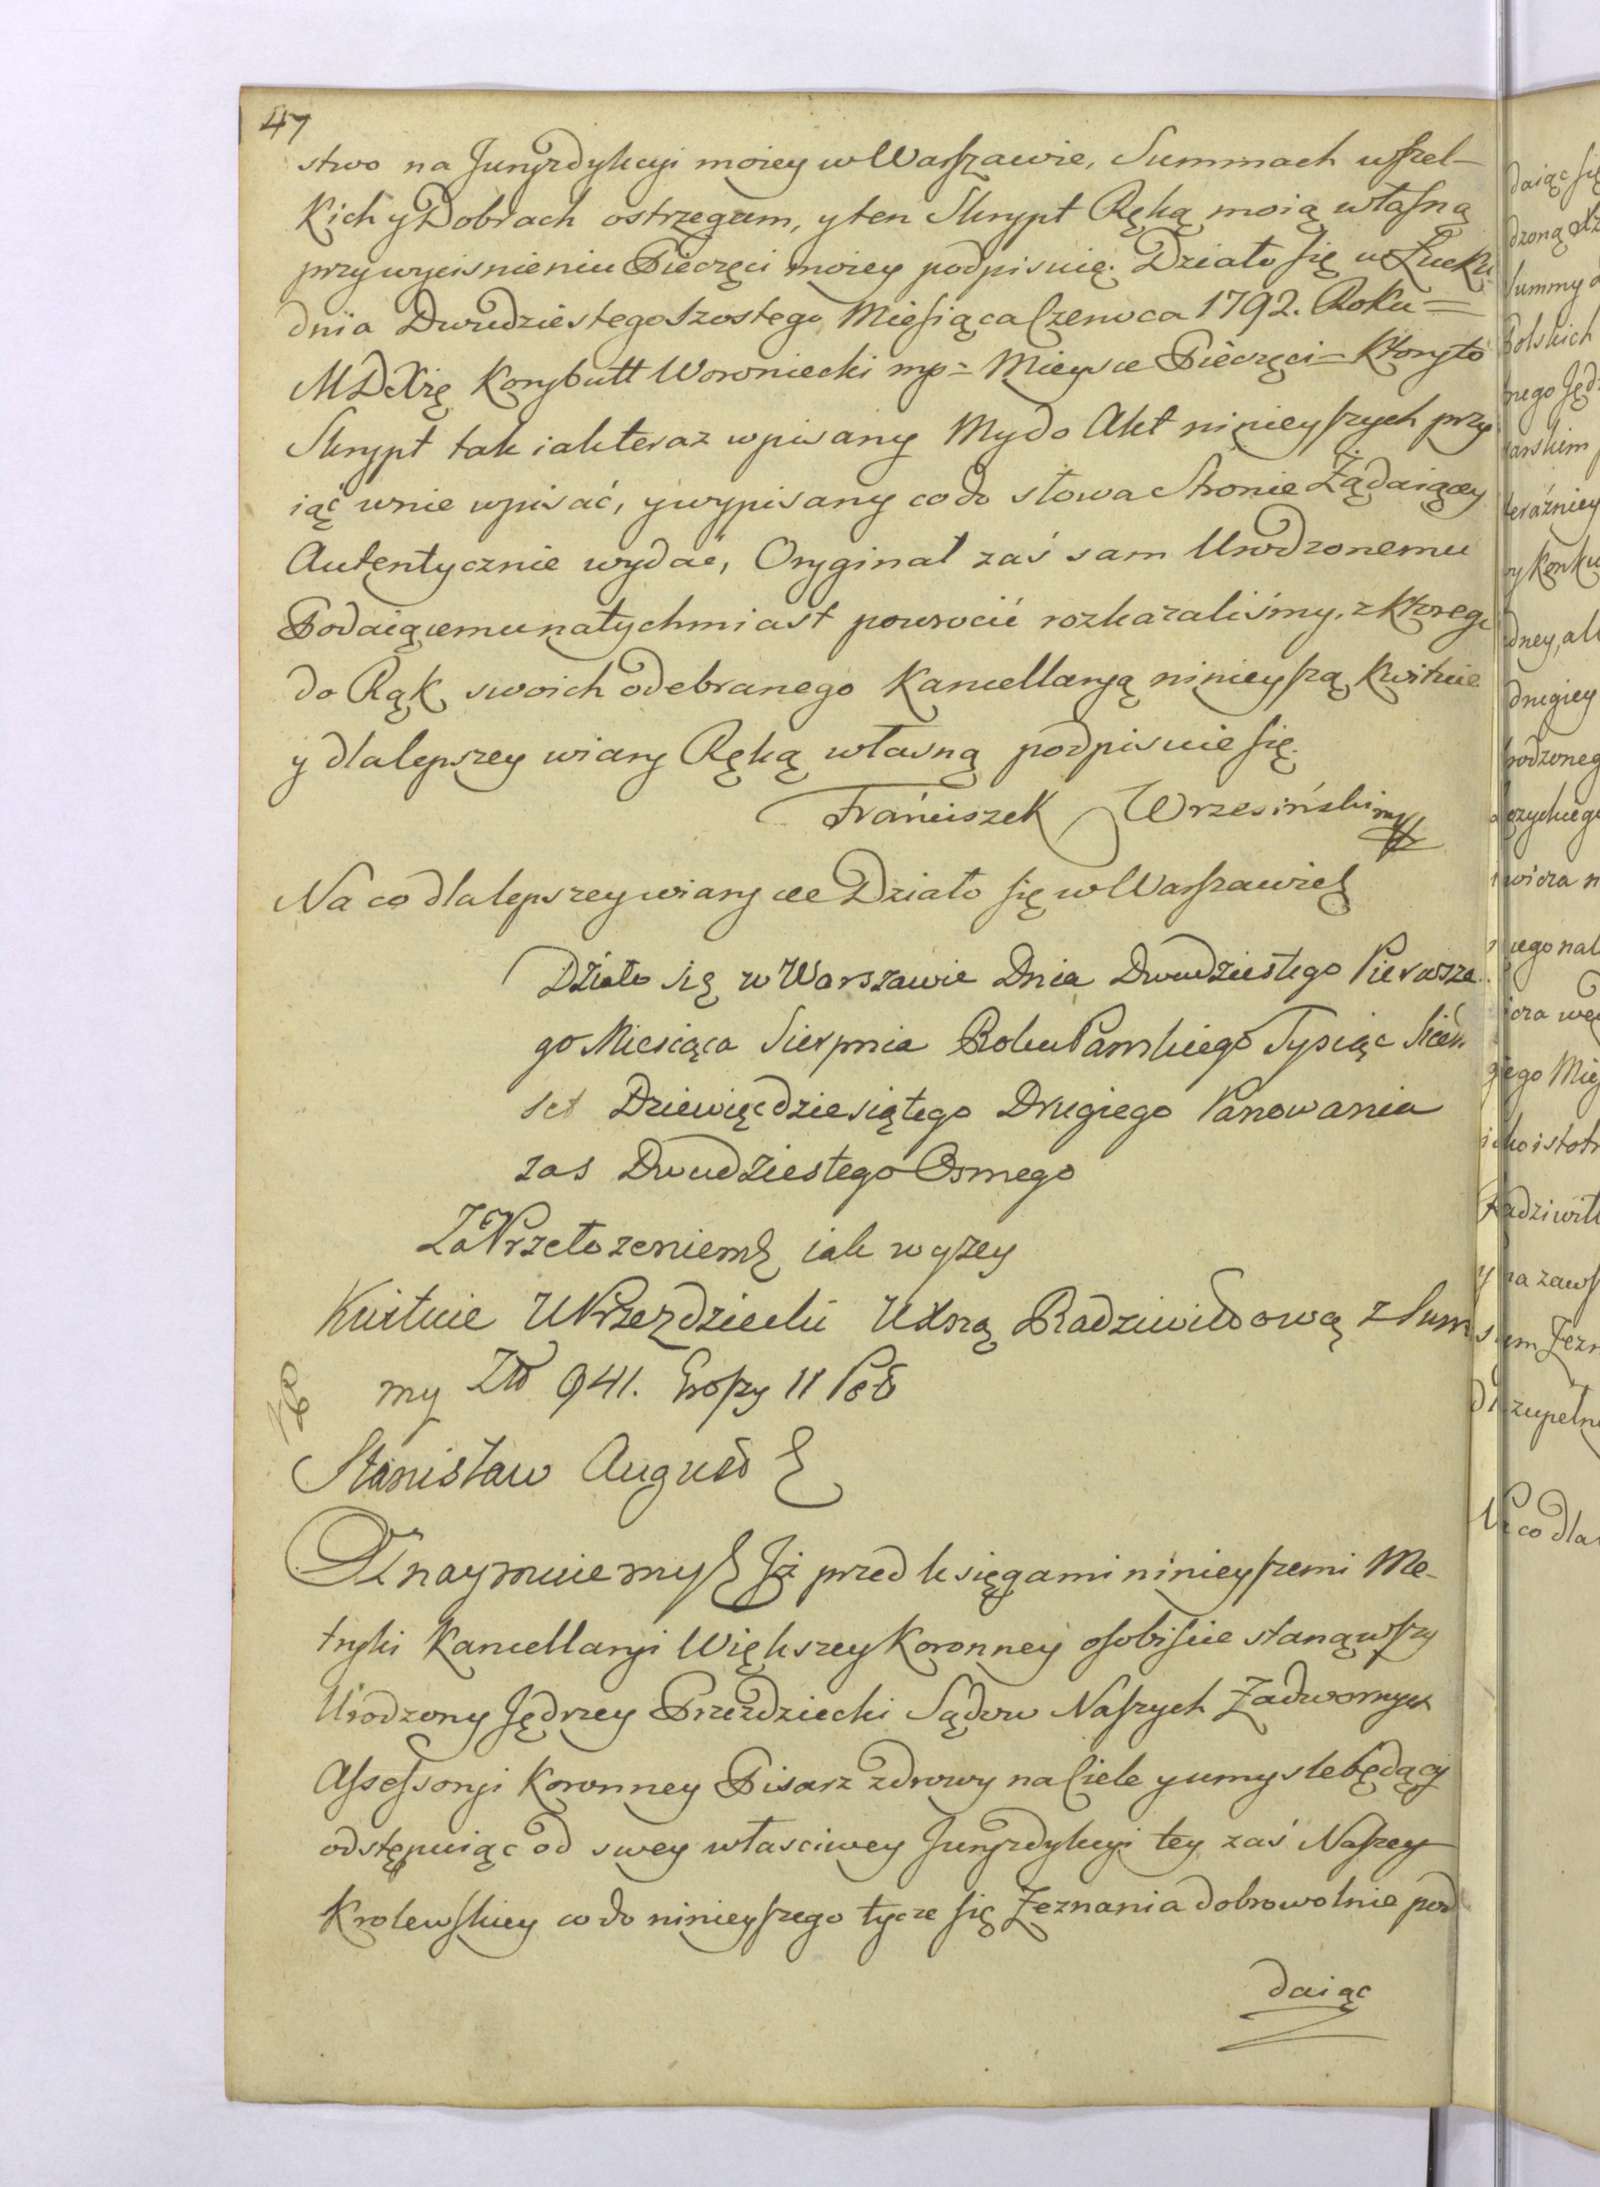 47
stwo na Juryzdykcyi moiey w Warszawie, Summach wszel-
kich y Dobrach ostrzegam, y ten Skrypt Ręką moią własną
przy wyciśnieniu Pieczęci moiey podpisuię. Działo się w Łucku
dnia Dwudziestego Szostego Miesiąca Czerwca 1792. Roku =
MDXżę Korybutt Woroniecki mp = Mieysce Pieczęci = Ktoryto
Skrypt tak iak teraz wpisany My do Akt ninieyszych przy
iąć w nie wpisać, y wypisany co do słowa Stronie Żądaiącey
Autentycznie wydać, Oryginał zaś sam Urodzonemu
Podaiącemu natychmiast powrocić rozkazaliśmy, z ktorego
do Rąk swoich odebranego Kancellaryą ninieyszą kwituie
y dla lepszey wiary Ręką własną podpisuie się.
Franciszek Wrzesiński mp
Na co dla lepszey wiary Działo się w Warszawie
Działo się w Warszawie Dnia Dwudziestego Pierwsze
go Miesiąca Sierpnia Roku Panskiego Tysiąc Siedm
set Dziewięcdziesiątego Drugiego Panowania
zas Dwudziestego Osmego
Za Przełozeniem iak wyzey
Kwituie UPrzezdziecki UXną Radziwiłłową z Sum
my Złł 941. Groszy 11 Pol
Stanisław August
Oznaymuiemy Iż przed księgami ninieyszemi Me-
tryki Kancellaryi Większey Koronney osobiscie stanąwszy
Urodzony Jędrzey Przezdziecki Sądow Naszych Zadwornych
Assessoryi Koronney Pisarz zdrowy na Ciele y umysle będący
odstępuiąc od swey własciwey Juryzdykcyi tey zaś Naszey
Krolewskiey co do ninieyszego tycze się Zeznania dobrowolnie pod
daiąc